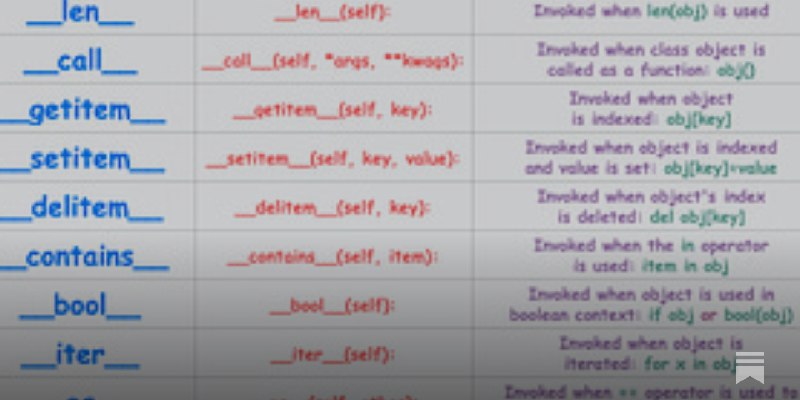 __len__ __len__(self): Invoked when len(obj) is used
__call__ __call__(self, *args, **kwags): Invoked when class object is
called as a function: obj()
__getitem__ __getitem__(self, key): Invoked when object
is indexed: obj[key]
__setitem__ __setitem__(self, key, value): Invoked when object is indexed
and value is set: obj[key]=value
__delitem__ __delitem__(self, key): Invoked when object's index
is deleted: del obj[key]
__contains__ __contains__(self, item): Invoked when the in operator
is used: item in obj
__bool__ __bool__(self): Invoked when object is used in
boolean context: if obj or bool(obj)
__iter__ __iter__(self): Invoked when object is
iterated: for x in obj
Invoked when == operator is used to